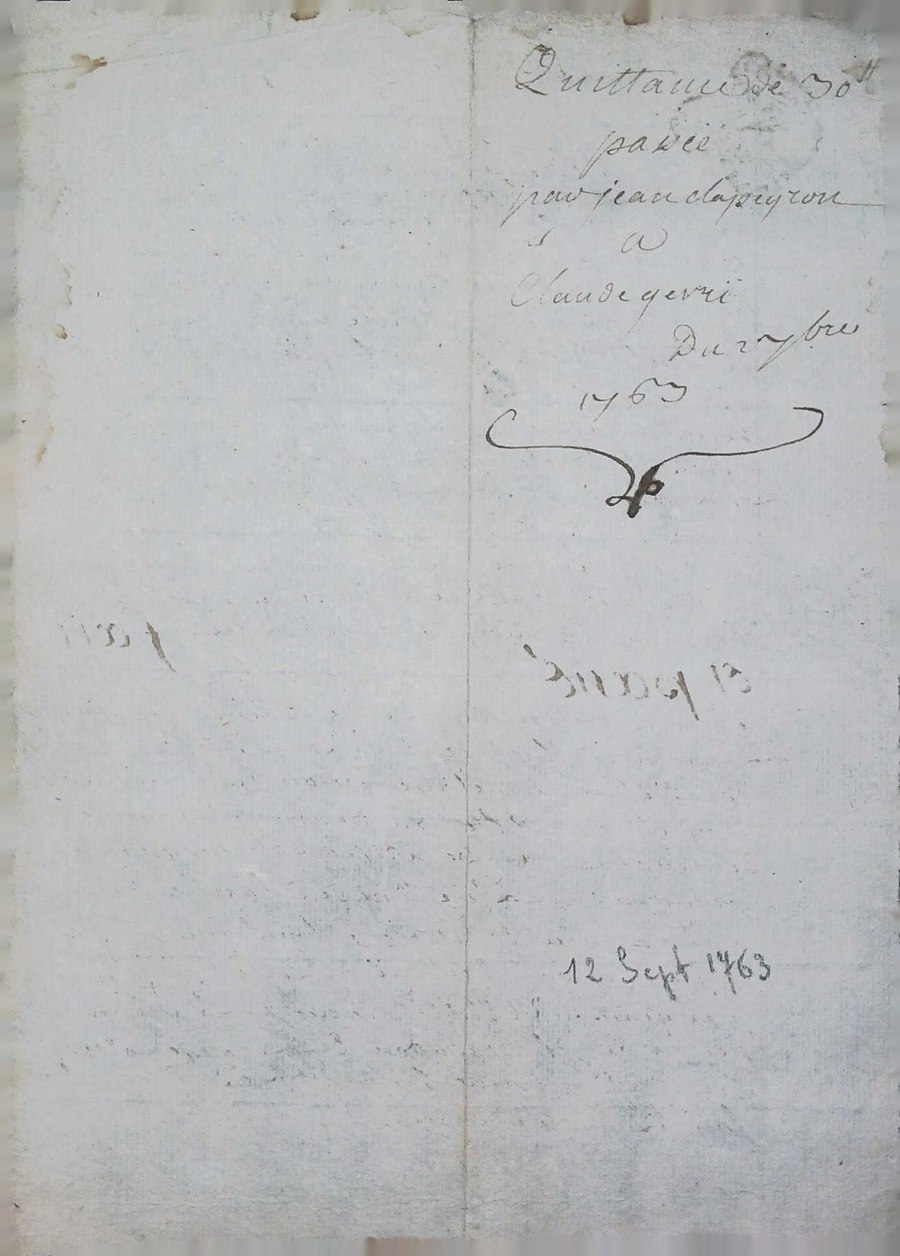 Quittance de 30 ₶
par jean clapeyron
a
Claude gerri
Du 7bre
1763
12 Sept 1763